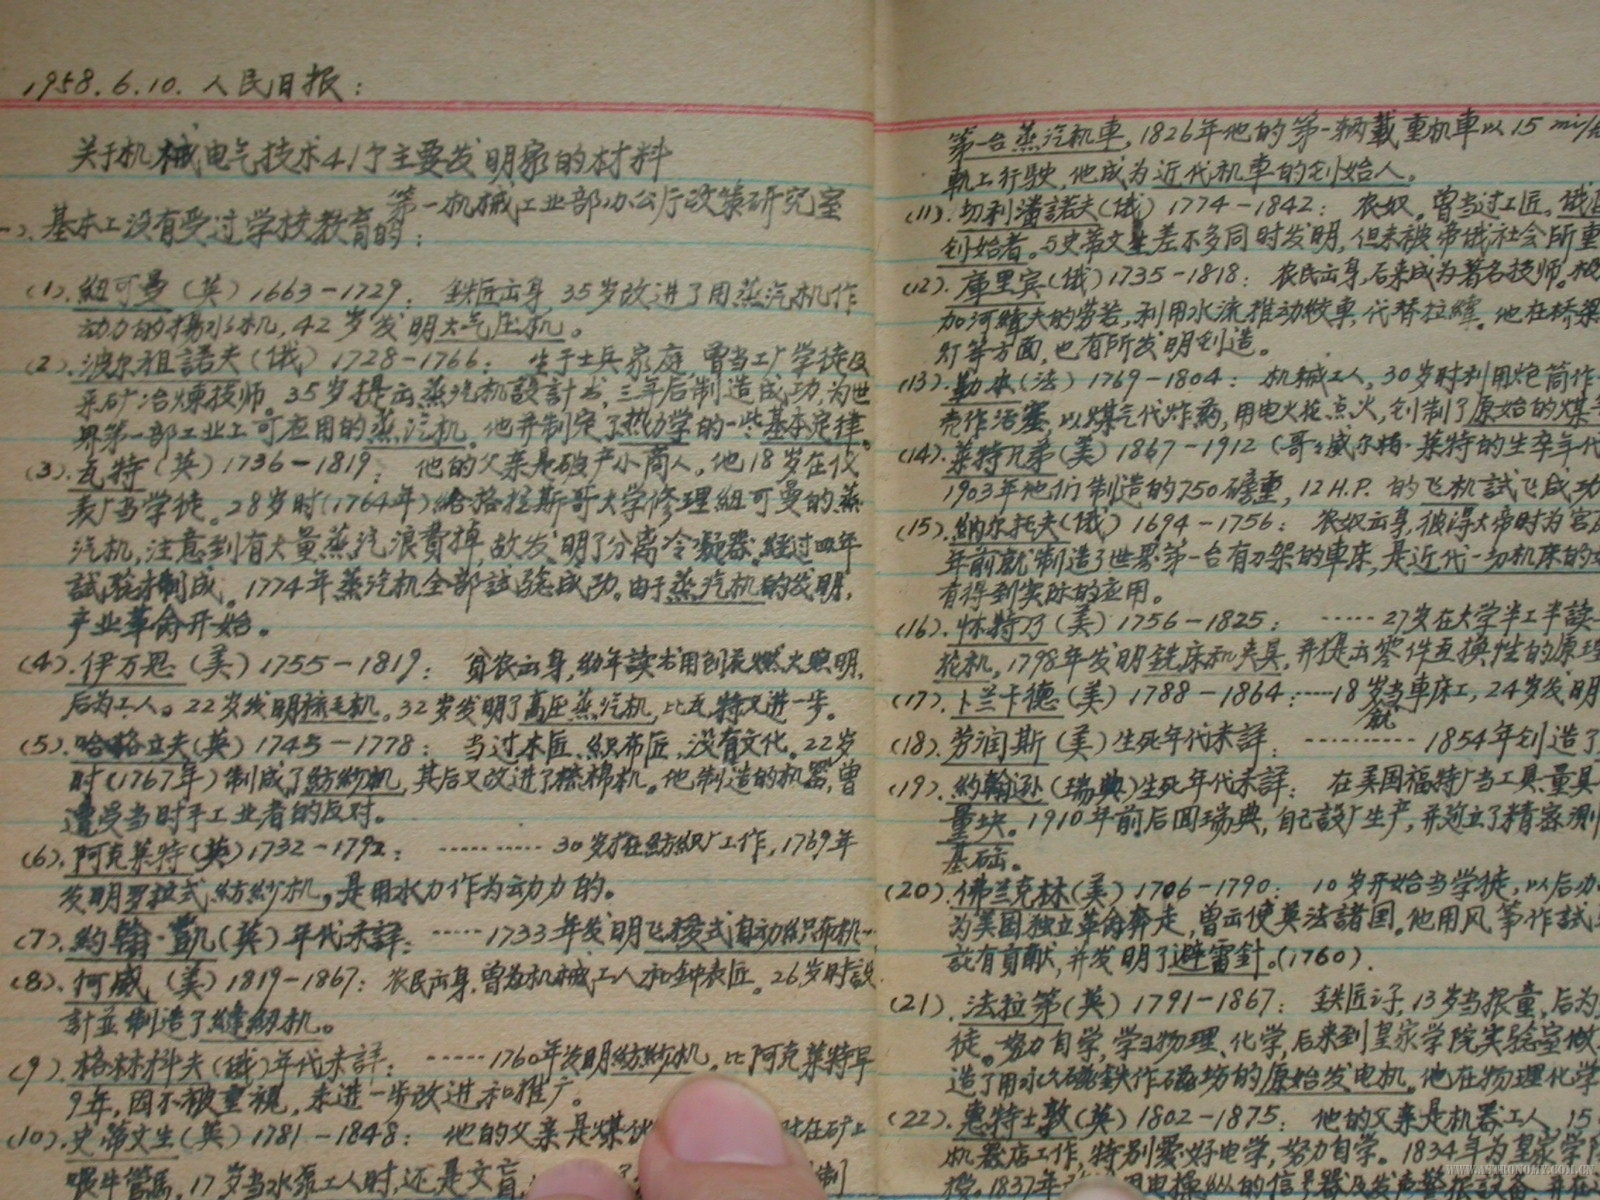 1958.6.10. 人民日报：
关于机械电气技术41个主要发明家的材料
第一机械工业部办公厅政策研究室
一）.基本工没有受过学校教育的：
(1).紐可曼（英）1663－1729： 鉄匠出身，35岁改进了用蒸汽机作
动力的揚水机，42岁发明大气压机。
(2).波尔祖諾夫（俄）1728－1766： 生于士兵家庭，曾当工厂学徒及
采矿冶煉技师。35岁提出蒸汽机設計书，三年后制造成功，为世
界第一部工业上可应用的蒸汽机。他并制定了热力学的一些基本定律。
(3).瓦特（英）1736－1819： 他的父亲是破产小商人。他18岁在仪
表厂当学徒。28岁时(1764年)給格拉斯哥大学修理紐可曼的蒸
汽机，注意到有大量蒸汽浪費掉，故发明了分离冷凝器。經过四年
試驗才制成。1774年蒸汽机全部試驗成功。由于蒸汽机的发明，
产业革命开始。
(4).伊万思（美）1755－1819： 貧农出身，幼年讀书用刨花燃火照明，
后为工人。22岁发明梳毛机。32岁发明了高压蒸汽机，比瓦特又进一步。
(5).哈格立夫(英) 1745－1778： 当过木匠、織布匠，没有文化。22岁
时(1767年)制成了紡紗机，其后又改进了梳棉机。他制造的机器，曾
遭受当时手工业者的反对。
(6).阿克萊特(英)1732－1792： ………… 30岁才在紡織厂工作，1769年
发明罗拉式紡紗机，是用水力作为动力的。
(7).約翰·凱(英)年代未詳： ……1733年发明飞梭式自动織布机
(8).何威（美）1819－1867：农民出身，曾为机械工人和钟表匠。26岁时設
計并制造了缝纫机。
(9).格林科夫（俄)年代未詳： ……1760年发明紡紗机。比阿克萊特早
9年，因不被重視，未进一步改进和推广。
(10).史蒂文生（英）1781－1848： 他的父亲是煤 在矿上
喂牛管馬，17岁当水泵工人时，还是文盲， 制
第一台蒸汽机車，1826年他的第一輛載重机車以15 mi/
軌上行驶，他成为近代机車的创始人。
(11).切利潘諾夫(俄) 1774－1842： 农奴。曾当过工匠。俄
创始者。与史蒂文生差不多同时发明，但未被帝俄社会所重
(12).庫里宾(俄)1735－1818： 农民出身，后来成为著名技师。
加河縴夫的劳苦，利用水流推动絞車，代替拉縴。他在桥梁
灯等方面，也有所发明创造。
(13).勒本(法) 1769－1804： 机械工人，30岁时利用炮筒作
壳作活塞，以煤气代炸药，用电火花点火，创制了原始的煤
(14).萊特兄弟(美) 1867－1912 (哥哥威尔特·萊特的生卒年代
1903年他们制造的750磅重，12 H.P. 的飞机試飞成功
(15).納尔托夫(俄) 1694－1756： 农奴出身，彼得大帝时为宫
年前就制造了世界第一台有刀架的車床，是近代一切机床的
有得到实际的应用。
(16).怀特乃(美) 1756－1825： ……27岁在大学半工半讀
花机，1798年发明銑床机夹具，并提出零件互换性的原理
(17).卜兰卡德(美) 1788－1864：……18岁当車床工，24岁发明
銑
(18).劳润斯（美)生死年代未詳： ………… 1854年创造了
(19).約翰逊(瑞典)生死年代未詳： 在美国福特厂当工具、量具
量块。1910年前后回瑞典，自己設厂生产，并建立了精密測
基础。
(20).佛兰克林(美) 1706－1790： 10岁开始当学徒，以后办
为美国独立革命奔走，曾出使英法諸国。他用风筝作試
說有貢献，并发明了避雷針。(1760).
(21).法拉第(英) 1791－1867： 鉄匠之子，13岁当报童，后为
徒。努力自学，学习物理、化学，后来到皇家学院实验室做
造了用永久磁鉄作磁场的原始发电机。他在物理化学
(22).惠特士敦(英) 1802－1875： 他的父亲是机器工人，15
机器店工作，特别爱好电学，努力自学。1834年为皇家学
授。1837年 用电操纵的信号器及发声警报設备，并在
WWW.ASTRONOMY.COM.CN